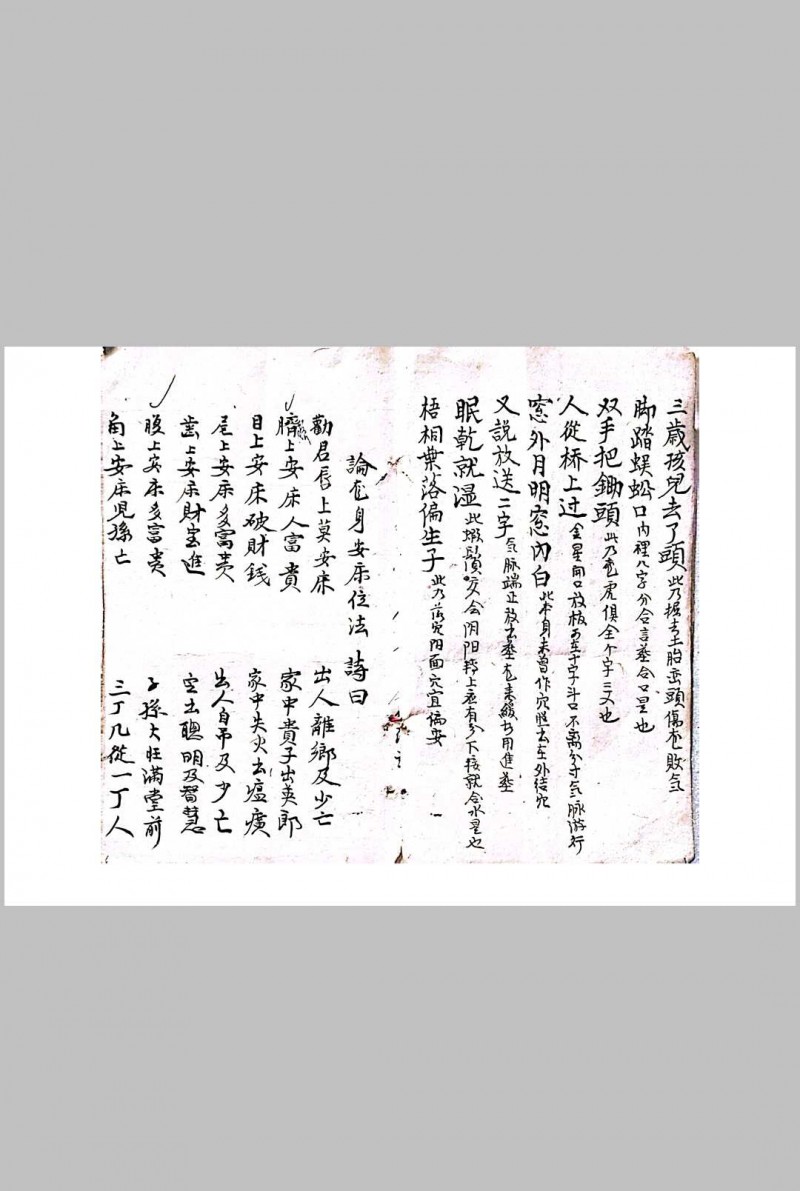 三歲孩兒去了頭 此乃掘去土胎巒頭傷龙敗气
脚踏蜈蚣 口內裡八字分合言葬合口是也
双手把鋤頭 此乃龙虎俱全个字三叉也
人從桥上过 金星開口放棺 十字斗口不离分寸气脉游行
窓外月明窓內白 此本身未曾作穴 去在外結穴
又說放送二字 气脉端正放出葬龙来緩 用進葬
眠乾就湿 此蝦鬚 交会阴阳 上应有分下接就合水是也
梧桐葉落偏生子 此乃 阳面穴宜偏安
論龙身安床位法 詩曰
勸君唇上莫安床 出人離鄉及少亡
臍上安床人富貴 家中貴子出英郎
目上安床破財錢 家中失火出瘟癀
尾上安床多富贵 出人自吊及少亡
齒上安床財宝進 定出聰明及智慧
腹上安床多富贵 子孫大旺滿堂前
角上安床児孫亡 三丁几從一丁人